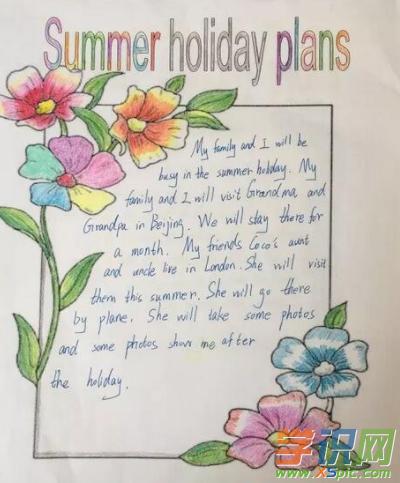 Summer holiday plans
My family and I will be
busy in the summer holiday. My
family and I will visit Grandma and
Grandpa in Beijing. We will stay there for
a month. My friends Coco's aunt
and uncle live in London. She will visit
them this summer. She will go there
by plane. She will take some photos
and some photos show me after
the holiday.
学识网
www.XSpic.com